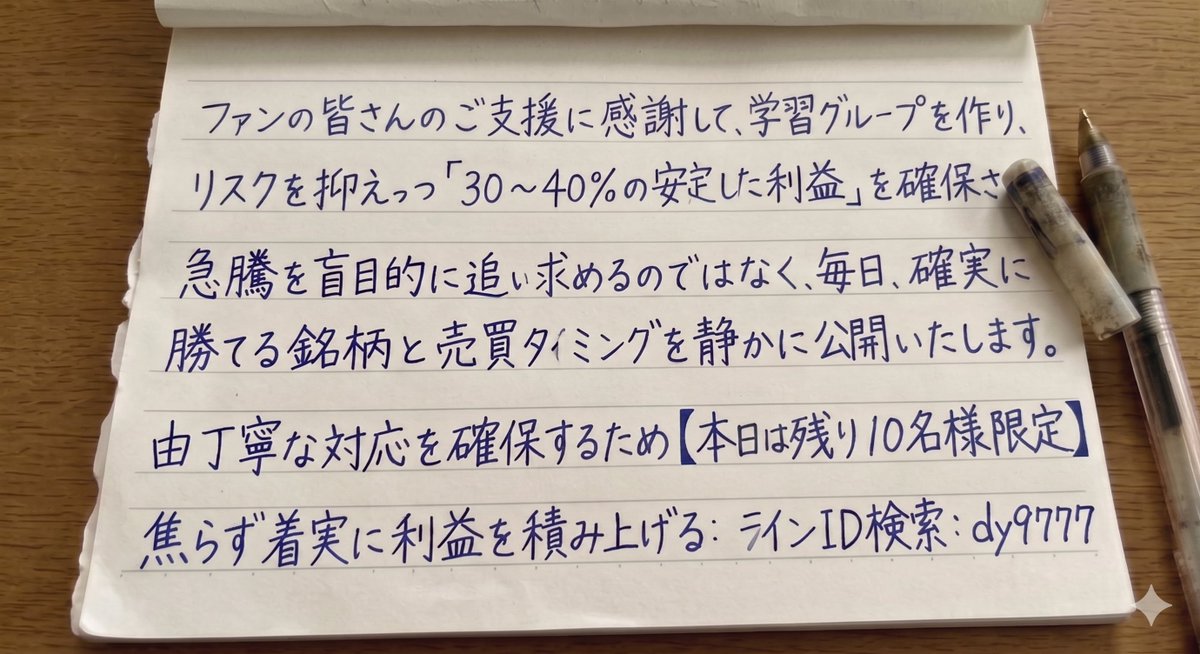 ファンの皆さんのご支援に感謝して、学習グループを作り、
リスクを抑えっつ「30～40%の安定した利益」を確保さ
急騰を盲目的に追い求めるのではなく、毎日、確実に
勝てる銘柄と売買タイミングを静かに公開いたします。
由丁寧な対応を確保するため【本日は残り10名様限定】
焦らず着実に利益を積み上げる：ラインID検索：dy9777